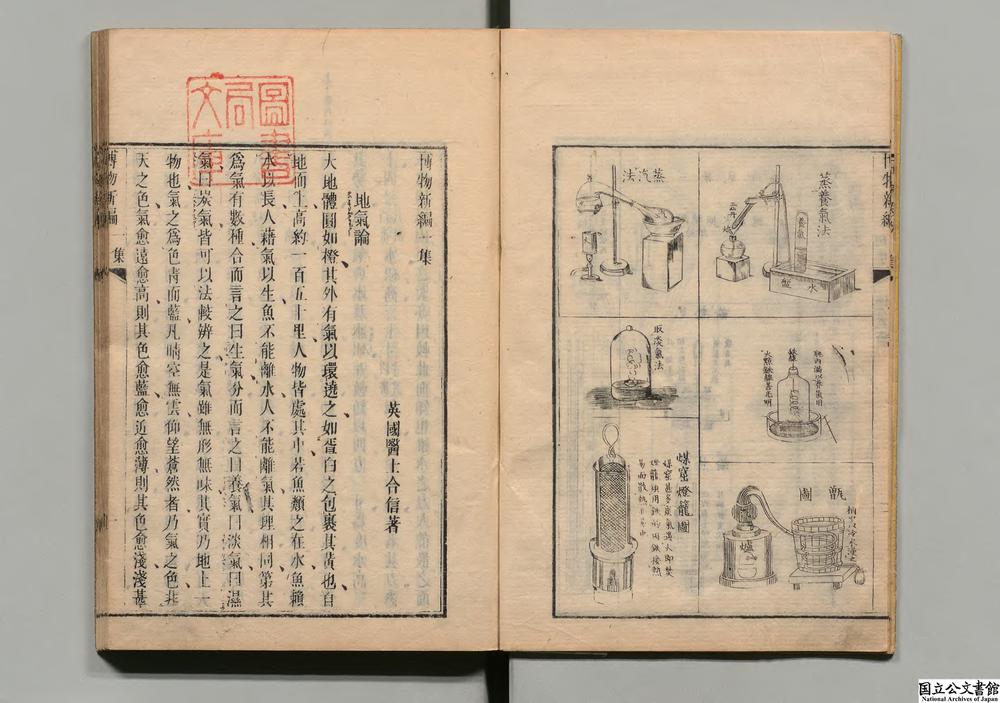 蒸養氣法
養氣
水盤
蒸汽法
取淡氣法
瓶内滿以養氣用
火燃鐵線甚光明
甑圖
爐
煤窰燈籠圖
博物新編一集
地氣論
英國醫士合信著
大地體圓如橙其外有氣以環遶之如蛋白之包裹其黃也自
地而生高約一百五十里人物皆處其中若魚類之在水魚賴
水以長人藉氣以生魚不能離水人不能離氣其理相同第其
爲氣有數種合而言之曰生氣分而言之曰養氣曰淡氣曰濕
氣曰炭氣皆可以法較辨之是氣雖無形無味其實乃地上一
物也氣之爲色青而藍凡晴空無雲仰望蒼然者乃氣之色非
天之色氣愈遠愈高則其色愈藍愈近愈薄則其色愈淺淺甚
博物新編 一集
圖書局文庫
国立公文書館
National Archives of Japan